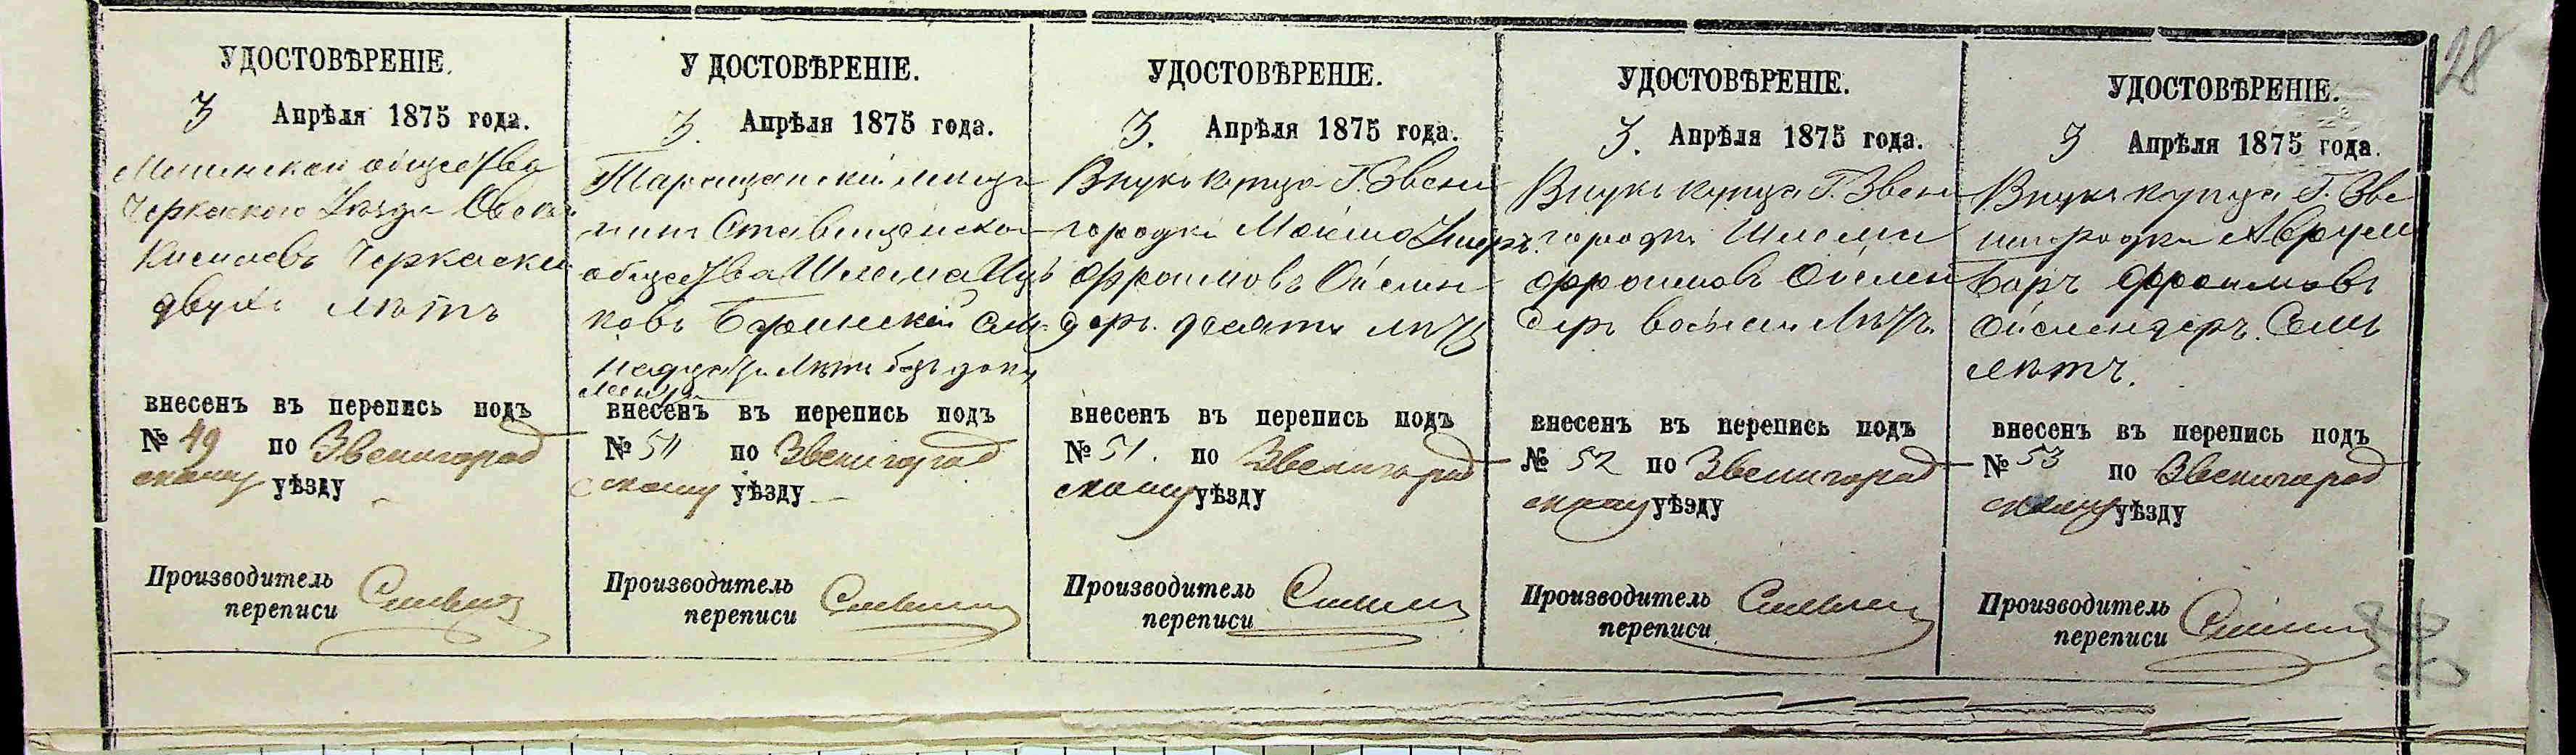 28
УДОСТОВѢРЕНІЕ.
3 Апрѣля 1875 года.
общества
Черкаского Уѣзда
Черкаски
двухъ лѣтъ
внесенъ въ перепись подъ
№ 49 по Звенигород
скому уѣзду
Производитель
переписи
УДОСТОВѢРЕНІЕ.
3. Апрѣля 1875 года.
Таращанскій мѣща
нинъ Ставищанско
общества Шлема Иць
ковъ
надцати лѣтъ безъ доку
мента
внесенъ въ перепись подъ
№ по Звенигород
скому уѣзду
Производитель
переписи
УДОСТОВѢРЕНІЕ.
3. Апрѣля 1875 года.
Внукъ купца Г. Звени
городки Мошко
Фроимовъ Ойслен
деръ. десяти лѣтъ
внесенъ въ перепись подъ
№ 51. по Звенигород
скому уѣзду
Производитель
переписи
УДОСТОВѢРЕНІЕ.
3. Апрѣля 1875 года.
Внукъ купца Г. Звени
городки Шлема
Фроимовъ Ойслен
деръ восьми лѣтъ.
внесенъ въ перепись подъ
№ 52 по Звенигород
скому уѣзду
Производитель
переписи
УДОСТОВѢРЕНІЕ.
3 Апрѣля 1875 года.
Внукъ купца Г. Зве
нигородки Аврум
Беръ Фроимовъ
Ойслендеръ. Семь
лѣтъ.
внесенъ въ перепись подъ
№ 53 по Звенигород
скому уѣзду
Производитель
переписи